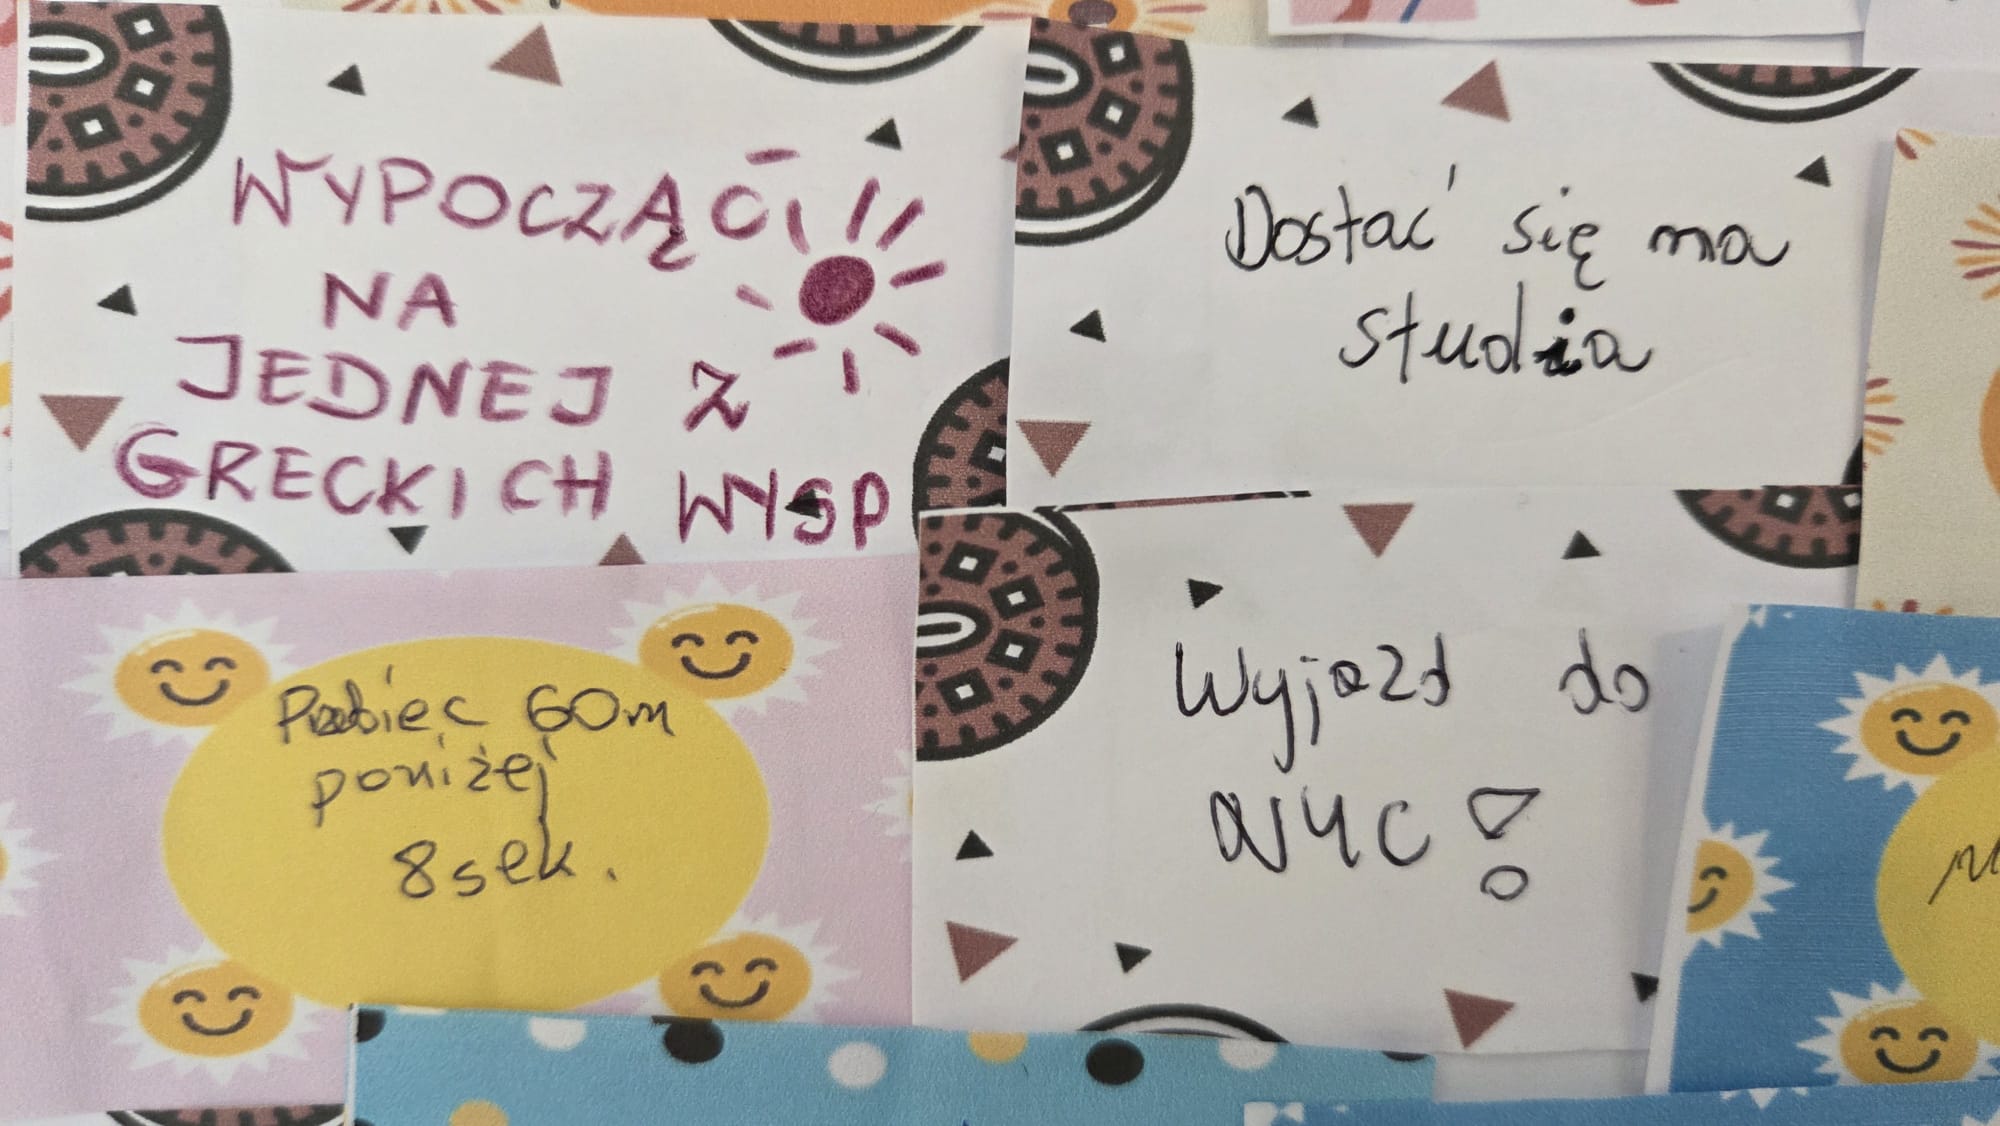 WYPOCZĄĆ
NA
JEDNEJ Z
GRECKICH WYSP
Dostać się na
studia
60m
poniżej
8 sek.
Wyjazd do
NYC!